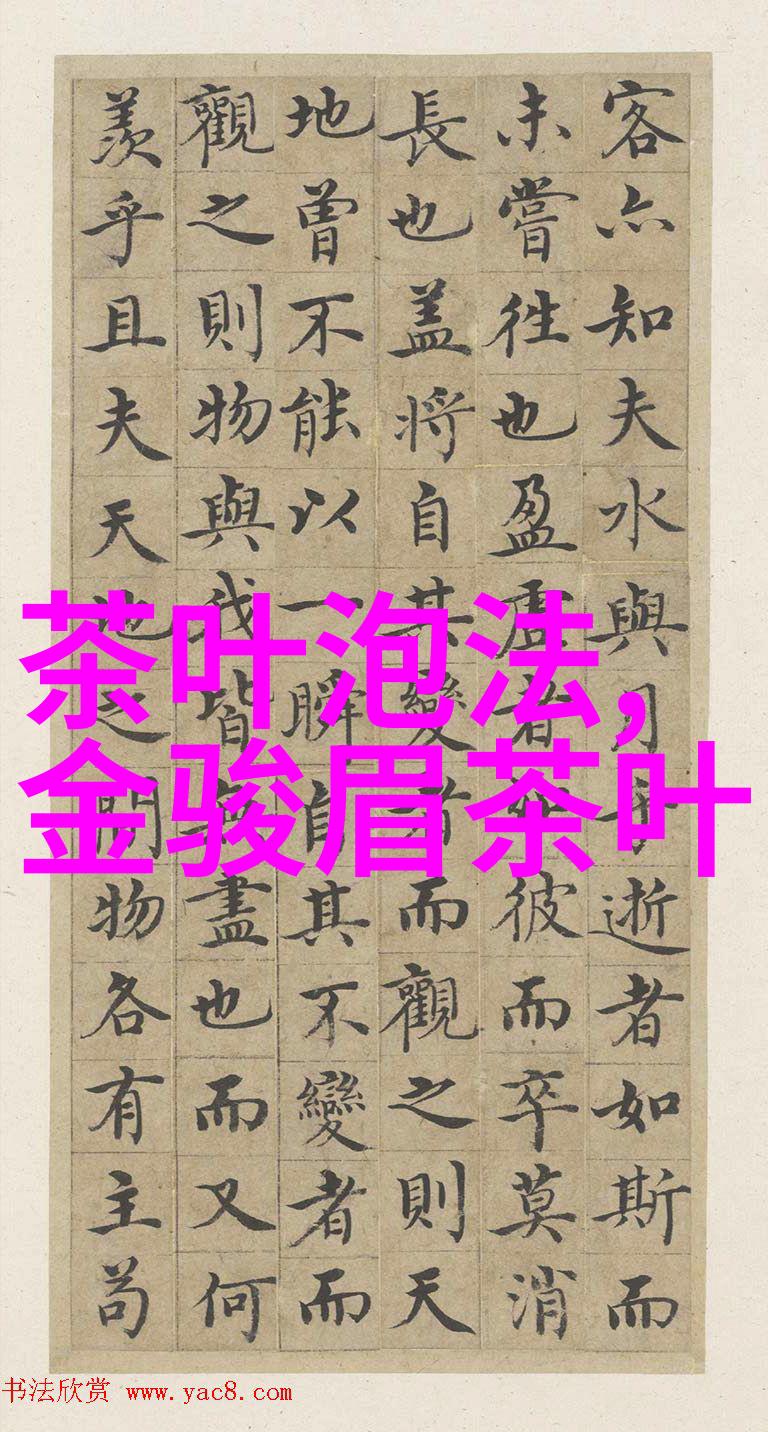 客亦知夫水與月乎逝者如斯而
未嘗往也盈虛者如彼而卒莫消
長也盖將自其變者而觀之則天
地曾不能以一瞬自其不變者而
觀之則物與我皆無盡也而又何
羨乎且夫天地之間物各有主苟
茶叶泡法,
金骏眉茶叶
书法欣赏 www.yac8.com